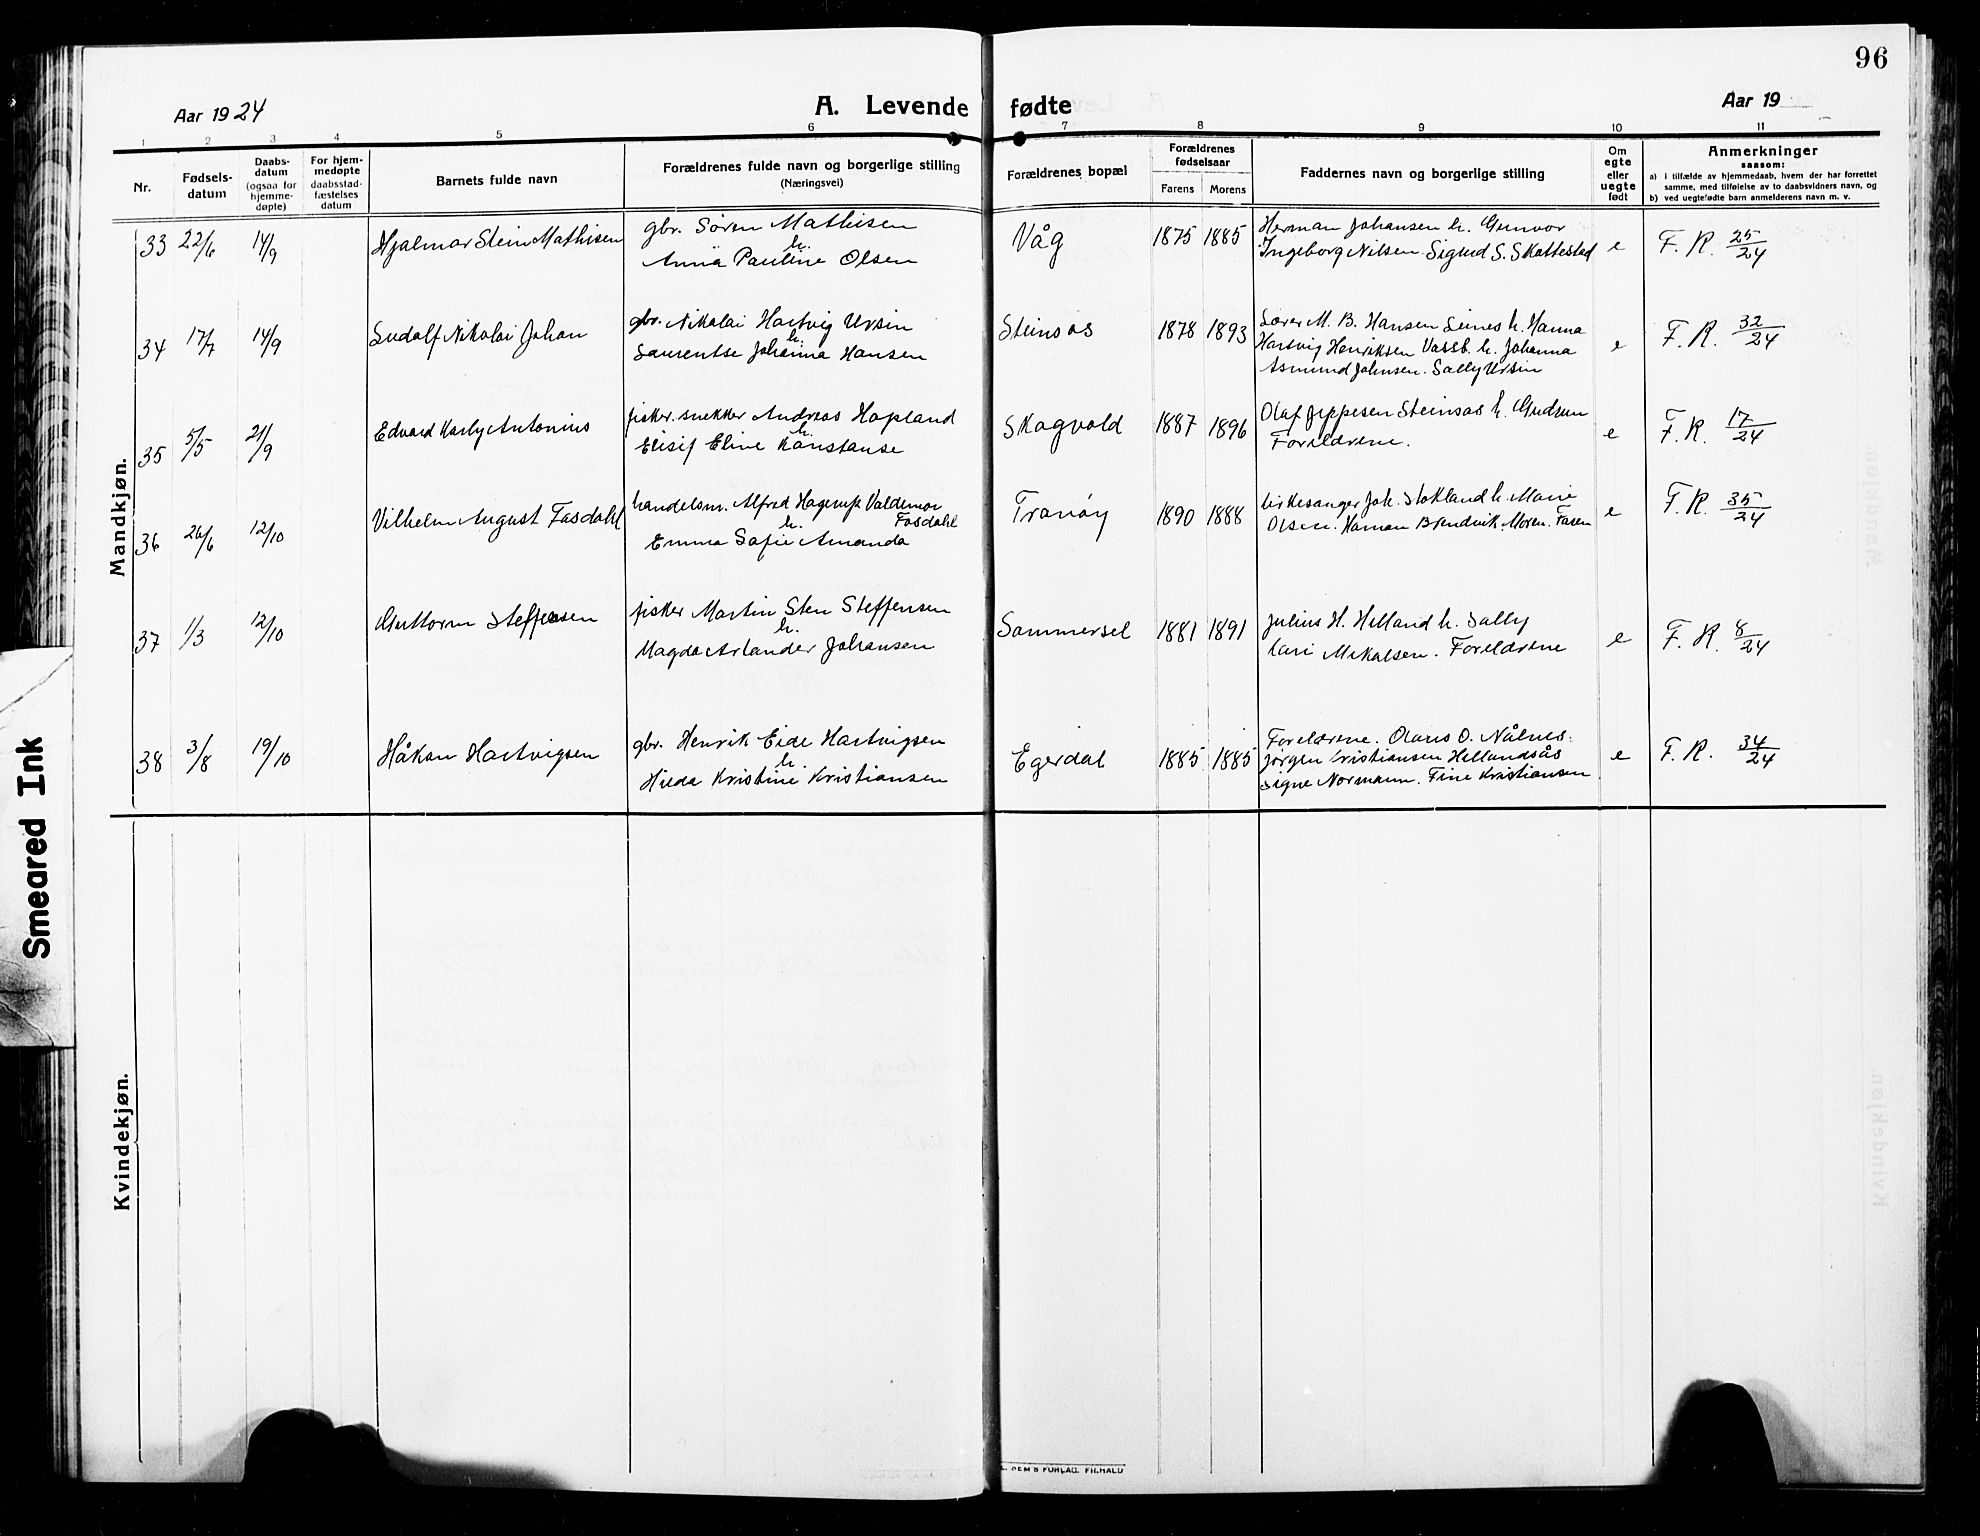 96
Aar 1924
A. Levende fødte
Aar 19
1 2 3 4 5 6 7 8 9 10 11
Nr.
Fødsels-
datum
Daabs-
datum
(ogsaa for
hjemme-
døpte)
For hjem-
medøpte
daabsstad-
fæstelses
datum
Barnets fulde navn
Forældrenes fulde navn og borgerlige stilling
(Næringsvei)
Forældrenes bopæl
Forældrenes
fødselsaar
Farens Morens
Faddernes navn og borgerlige stilling
Om
egte
eller
uegte
født
Anmerkninger
saasom:
a) i tilfælde av hjemmedaab, hvem der har forrettet
samme, med tilføielse av to daabsvidners navn, og
b) ved uegtefødte barn anmelderens navn m. v.
Mandkjøn.
33 22/6 14/9 Hjalmar Stein Mathisen
gbr. Søren Mathisen
h.
Anna Pauline Olsen
Våg 1875 1885
Herman Johansen h. Gunvor
Ingeborg Nilsen. Sigurd S. Skattestad
e F. R. 25/24
34 17/7 14/9 Ludolf Nikolai Johan
gbr. Nikolai Hartvig Ursin
h.
Laurentse Johanna Hansen
Steinsås 1878 1893
Lærer M. B. Hansen Leines h. Hanna
Hartvig Henriksen Vassb. h. Johanna
Asmund Johnsen. Sally Ursin
e F. R. 32/24
35 5/5 21/9 Edvard Karly Antonius
fisker. snekker Andreas Hopland
h.
Elisif Eline Konstanse
Skogvold 1887 1896
Olaf Jeppesen Steinsås h. Gudrun
Foreldrene.
e F. R. 17/24
36 26/6 12/10 Vilhelm August Fasdahl
handelsm. Alfred Hagerup Valdemar
Fasdahl
h.
Emma Sofie Amanda
Tranøy 1890 1888
kirkesanger Joh. Stokland h. Marie
Olsen. Haman Brendvik. Moren. Faren
e F. R. 35/24
37 1/3 12/10 Guttorm Steffensen
fisker Martin Sten Steffensen
h.
Magda Arlander Johansen
Sommersel 1881 1891
Julius H. Helland h. Sally
Kari Mikalsen. Foreldrene
e F. R. 8/24
38 3/8 19/10 Håkon Hartvigsen
gbr. Henrik Eide Hartvigsen
h.
Hilda Kristine Kristiansen
Egerdal 1885 1885
Foreldrene. Olaus O. Nålnes.
Jørgen Kristiansen Hellandsås
Signe Normann. Fine Kristiansen
e F. R. 34/24
Kvindekjøn.
Smeared Ink